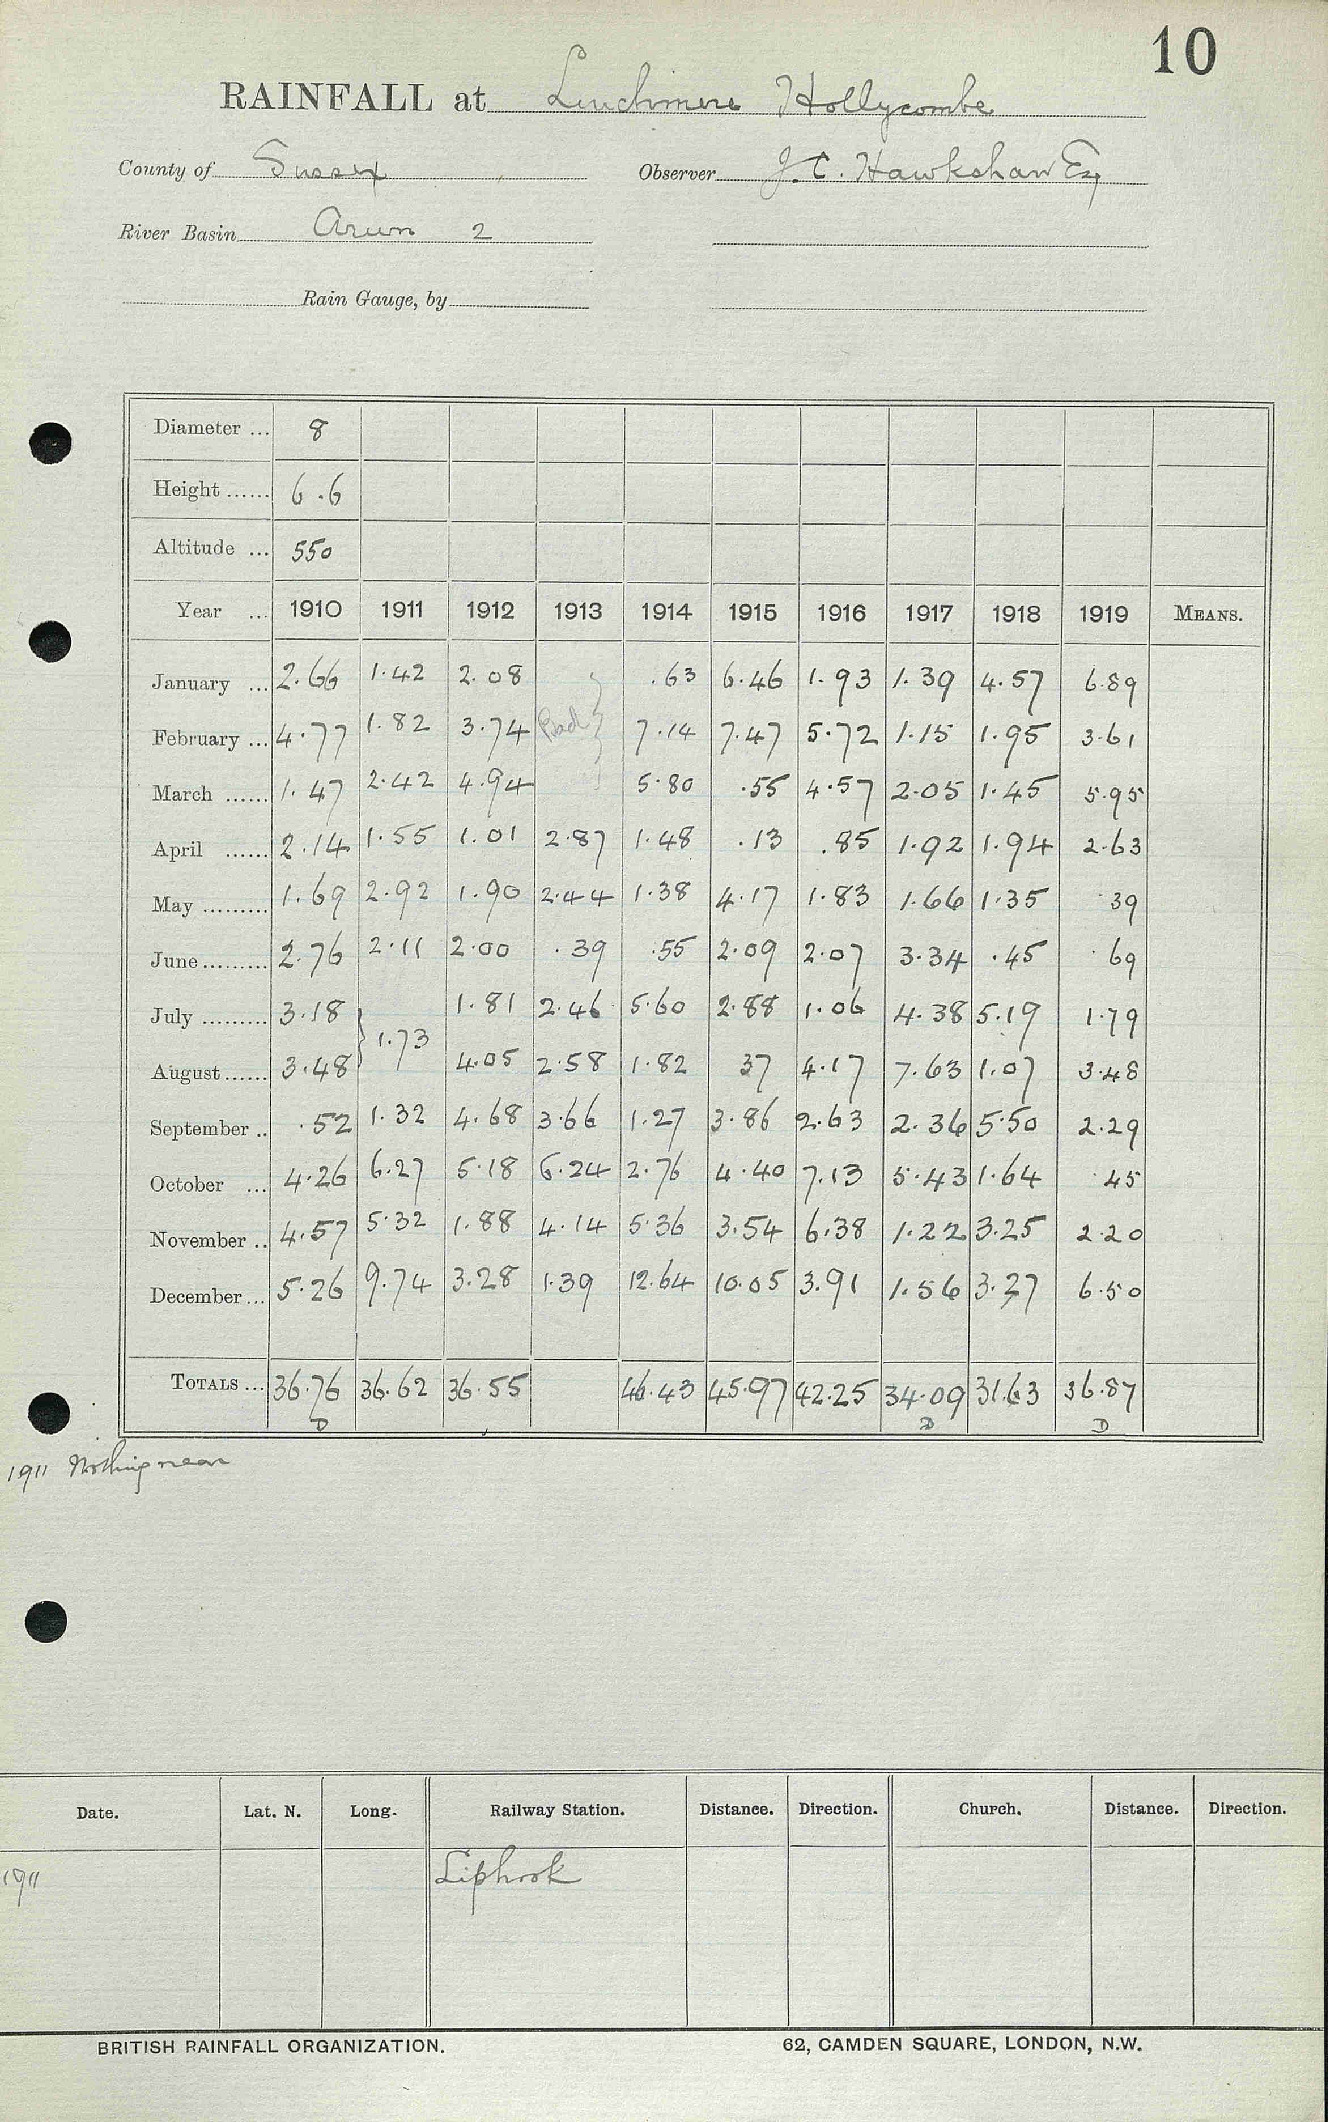 10
RAINFALL at Linchmere Hollycombe
County of Sussex Observer J. C. Hawkshaw Esq
River Basin Arun 2
Rain Gauge, by
Diameter ... 8
Height ...... 6.6
Altitude ... 550
Year ... 1910 1911 1912 1913 1914 1915 1916 1917 1918 1919 MEANS.
January ... 2.66 1.42 2.08 .63 6.46 1.93 1.39 4.57 6.89
February ... 4.77 1.82 3.74 Bad 7.14 7.47 5.72 1.15 1.95 3.61
March ...... 1.47 2.42 4.94 5.80 .55 4.57 2.05 1.45 5.95
April ...... 2.14 1.55 1.01 2.87 1.48 .13 .85 1.92 1.94 2.63
May ......... 1.69 2.92 1.90 2.44 1.38 4.17 1.83 1.66 1.35 .39
June ......... 2.76 2.11 2.00 .39 .55 2.09 2.07 3.34 .45 .69
July ......... 3.18 1.81 2.46 5.60 2.88 1.06 4.38 5.19 1.79
} 1.73
August ...... 3.48 4.05 2.58 1.82 37 4.17 7.63 1.07 3.48
September .. .52 1.32 4.68 3.66 1.27 3.86 2.63 2.36 5.50 2.29
October ... 4.26 6.27 5.18 6.24 2.76 4.40 7.13 5.43 1.64 .45
November .. 4.57 5.32 1.88 4.14 5.36 3.54 6.38 1.22 3.25 2.20
December ... 5.26 9.74 3.28 1.39 12.64 10.05 3.91 1.56 3.27 6.50
TOTALS ... 36.76 36.62 36.55 46.43 45.97 42.25 34.09 31.63 36.87
D D D
1911 Nothing near
Date. Lat. N. Long. Railway Station. Distance. Direction. Church. Distance. Direction.
1911 Liphook
BRITISH RAINFALL ORGANIZATION. 62, CAMDEN SQUARE, LONDON, N.W.